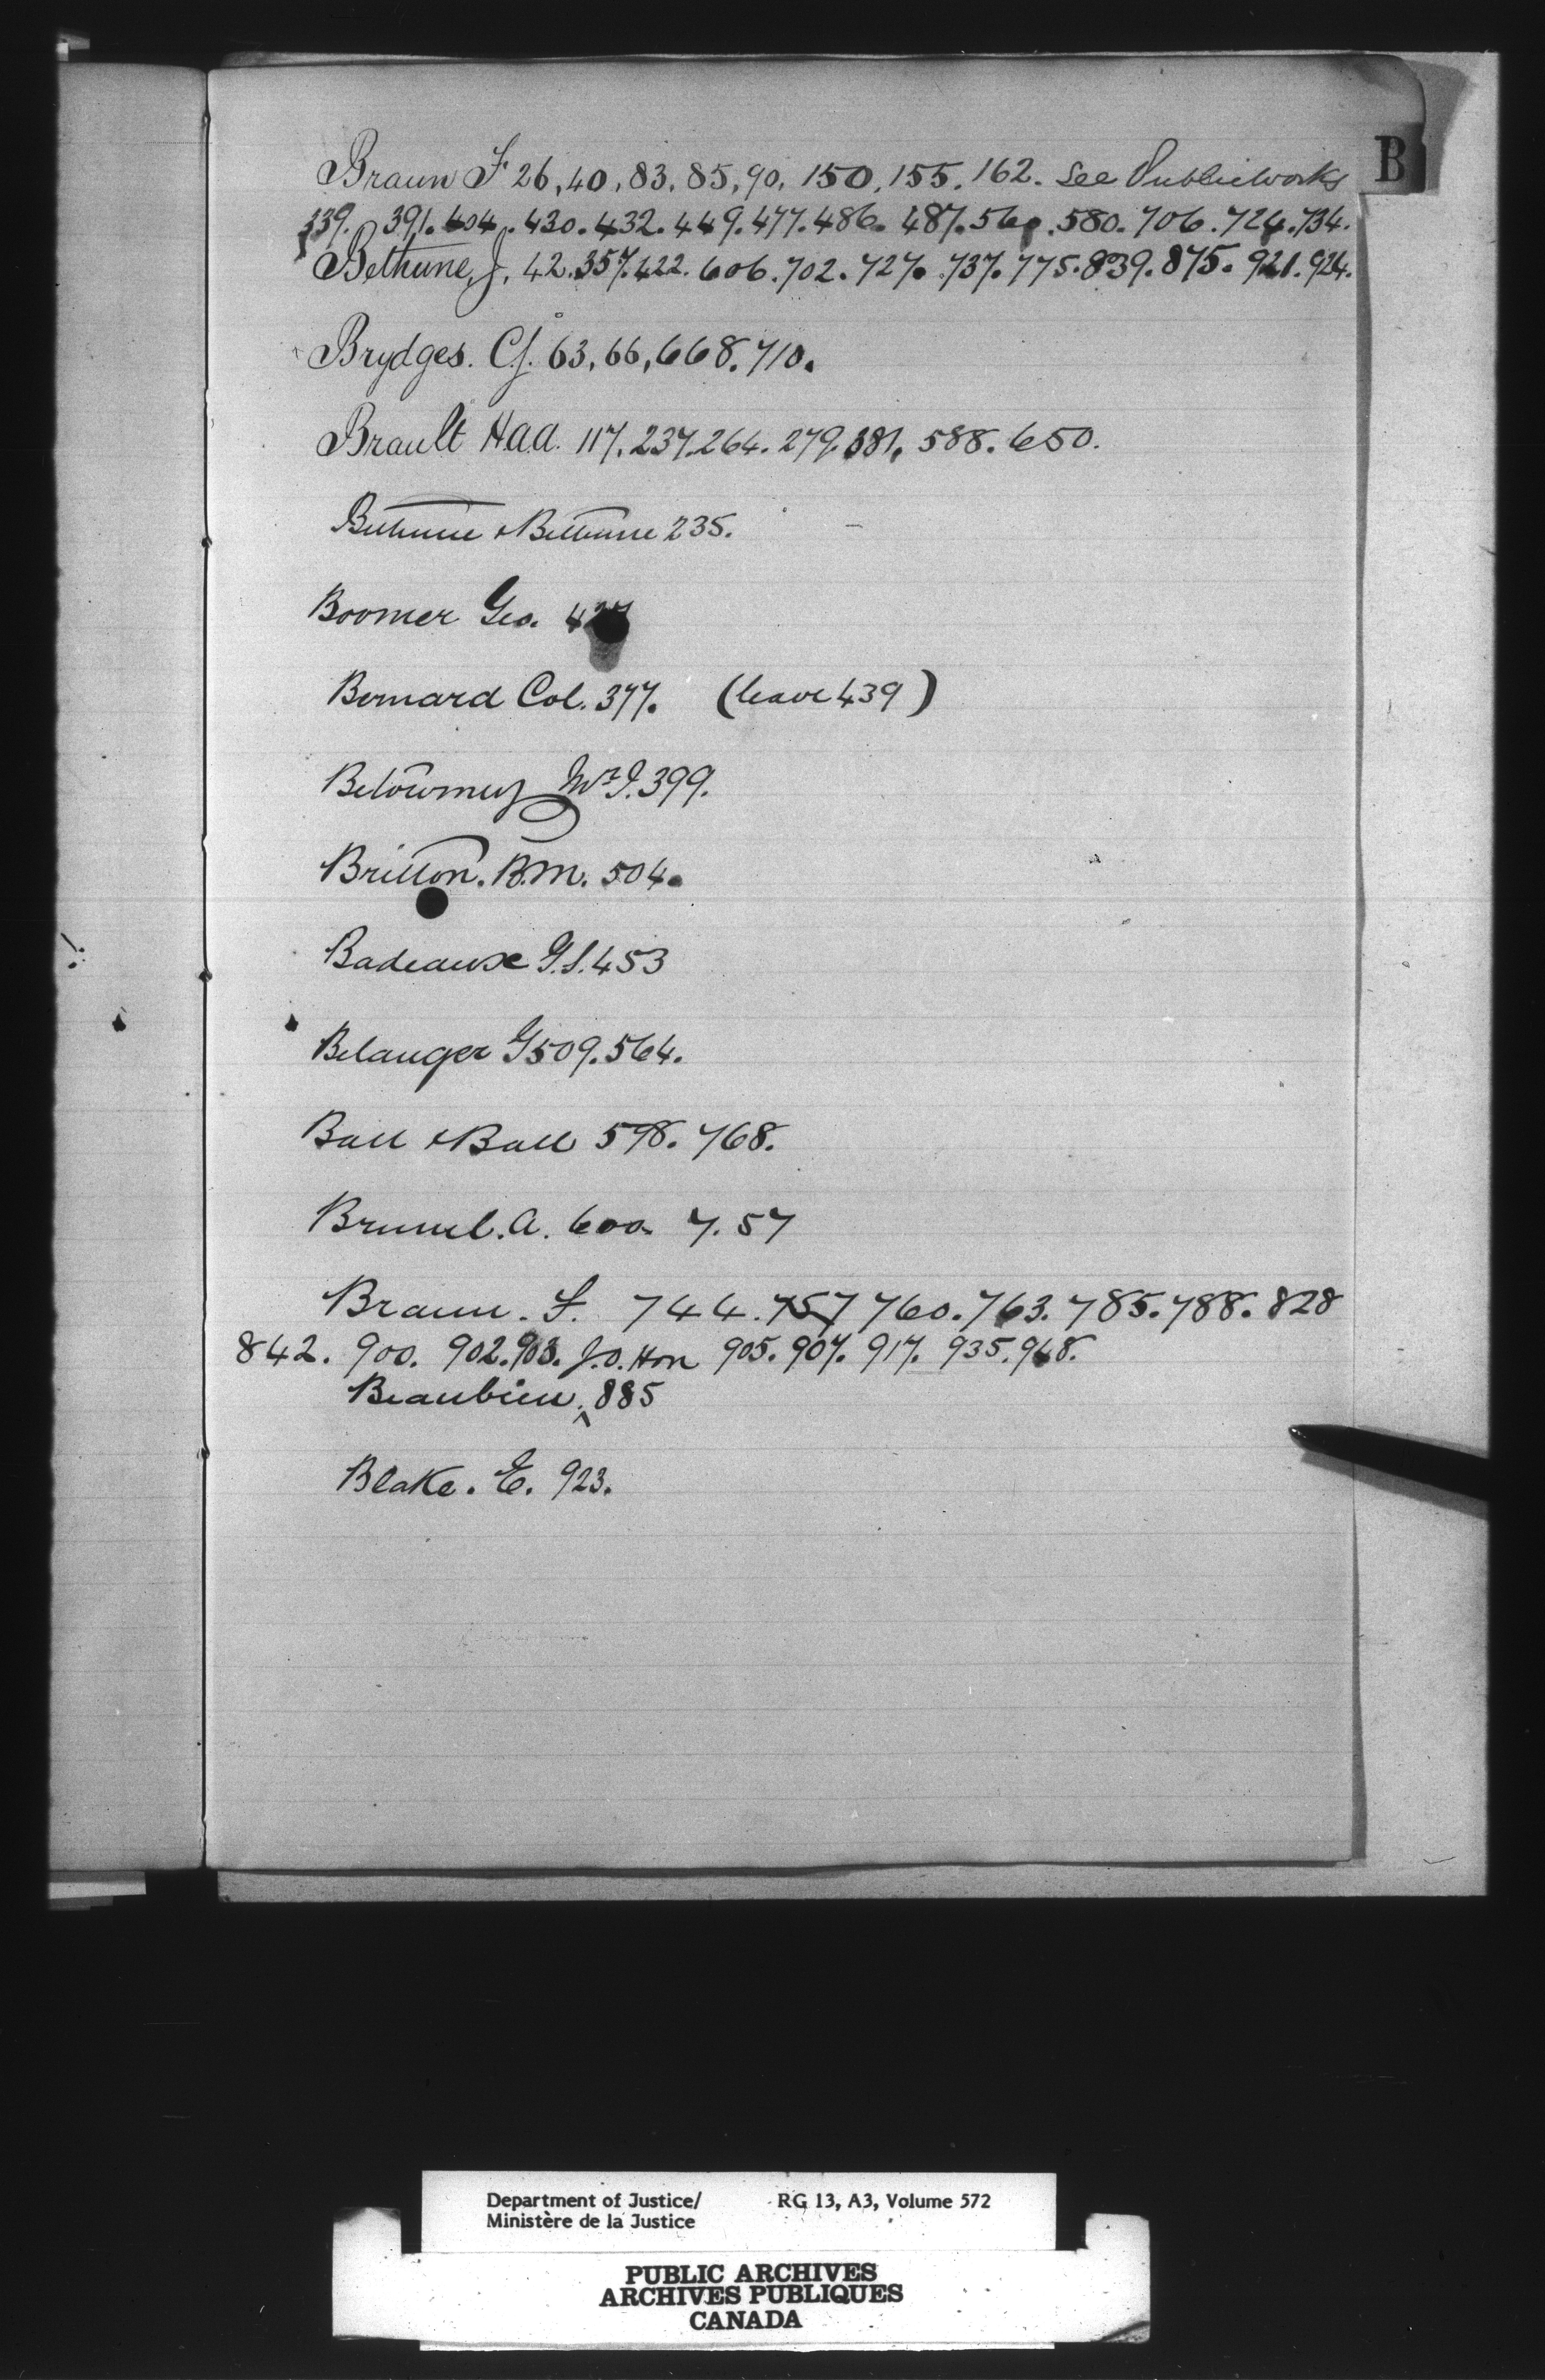 B
Braun F 26, 40, 83, 85, 90, 150, 155, 162. See Public Works
339. 391. 404. 430. 432. 449. 477. 486. 487. 560. 580. 706. 724. 734.
Bethune, J. 42. 357. 422. 606. 702. 727. 737. 775. 839. 875. 921. 924.
Brydges. C.J. 63, 66, 668. 710.
Brault H.A.A. 117. 237. 264. 279. 381. 588. 650.
Bethune & Bethune 235.
Boomer Geo. 427
Bernard Col. 377. (leave 439)
Betournay Mr J. 399.
Britton. B.M. 504.
Badeaux G.S. 453
Belanger G 509. 564.
Ball & Ball 578. 768.
Brunel. A. 600. 7.57
Braun. F. 744. 757 760. 763. 785. 788. 828
842. 900. 902. 903. J.O. Hon 905. 907. 917. 935. 948.
Beaubien. 885
Blake. E. 923.
Department of Justice/ RG 13, A3, Volume 572
Ministère de la Justice
PUBLIC ARCHIVES
ARCHIVES PUBLIQUES
CANADA